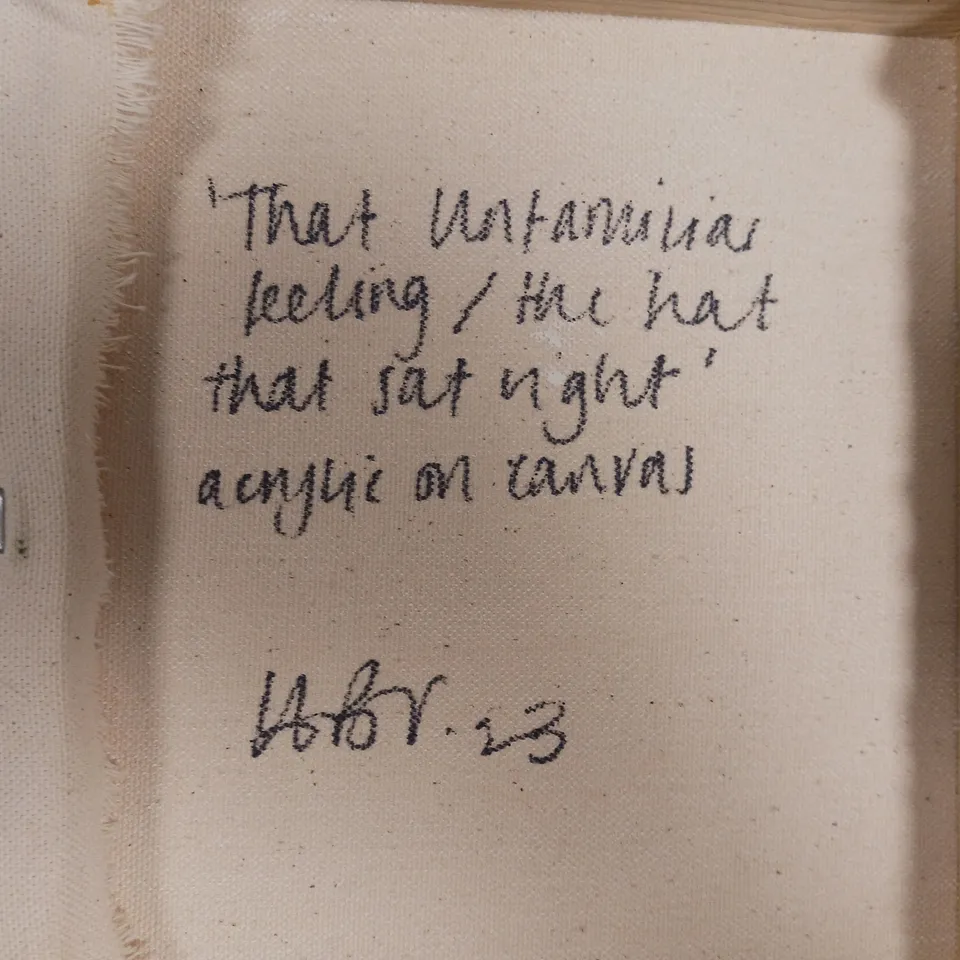 'That Unfamiliar
feeling / the hat
that sat right'
acrylic on canvas
23